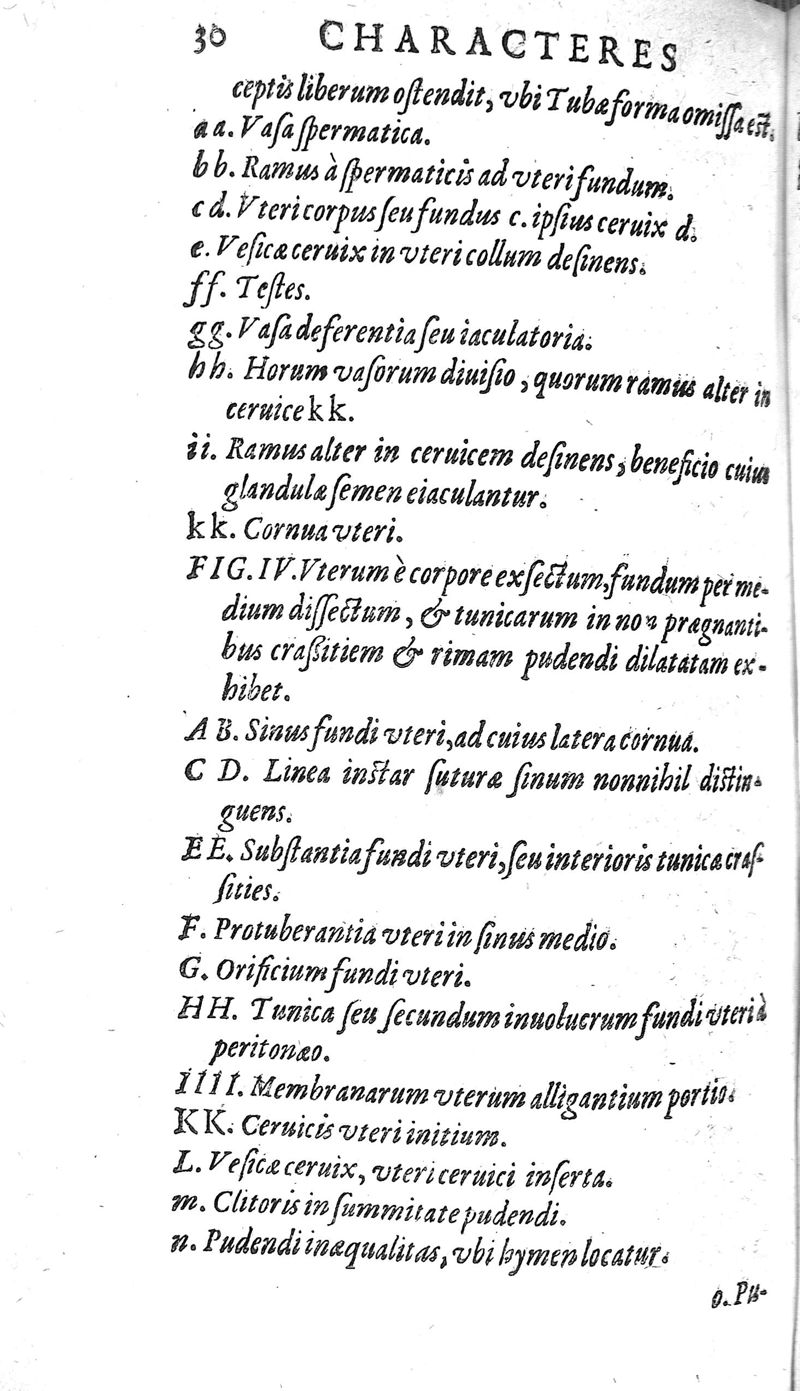 30 CHARACTERES
ceptis liberum ostendit, vbi Tubæ forma omissa est.
aa. Vasa spermatica.
bb. Ramus à spermaticis ad vteri fundum.
c d. Vteri corpus seu fundus c. ipsius ceruix d.
e. Vesicæ ceruix in vteri collum desinens.
ff. Testes.
gg. Vasa deferentia seu iaculatoria.
hh. Horum vasorum diuisio, quorum ramus alter in
ceruice kk.
ii. Ramus alter in ceruicem desinens, beneficio cuius
glandulæ semen eiaculantur.
kk. Cornua vteri.
FIG. IV. Vterum è corpore exsectum, fundum per me-
dium dissectum, & tunicarum in non prægnanti-
bus crassitiem & rimam pudendi dilatatam ex-
hibet.
A B. Sinus fundi vteri, ad cuius latera cornua.
C D. Linea instar suturæ sinum nonnihil distin-
guens.
EE. Substantia fundi vteri, seu interioris tunicæ cras-
sities.
F. Protuberantia vteri in sinus medio.
G. Orificium fundi vteri.
HH. Tunica seu secundum inuolucrum fundi vteri à
peritonæo.
IIII. Membranarum vterum alligantium portio.
KK. Ceruicis vteri initium.
L. Vesicæ ceruix, vteri ceruici inserta.
m. Clitoris in summitate pudendi.
n. Pudendi inæqualitas, vbi hymen locatur.
o. Pu-